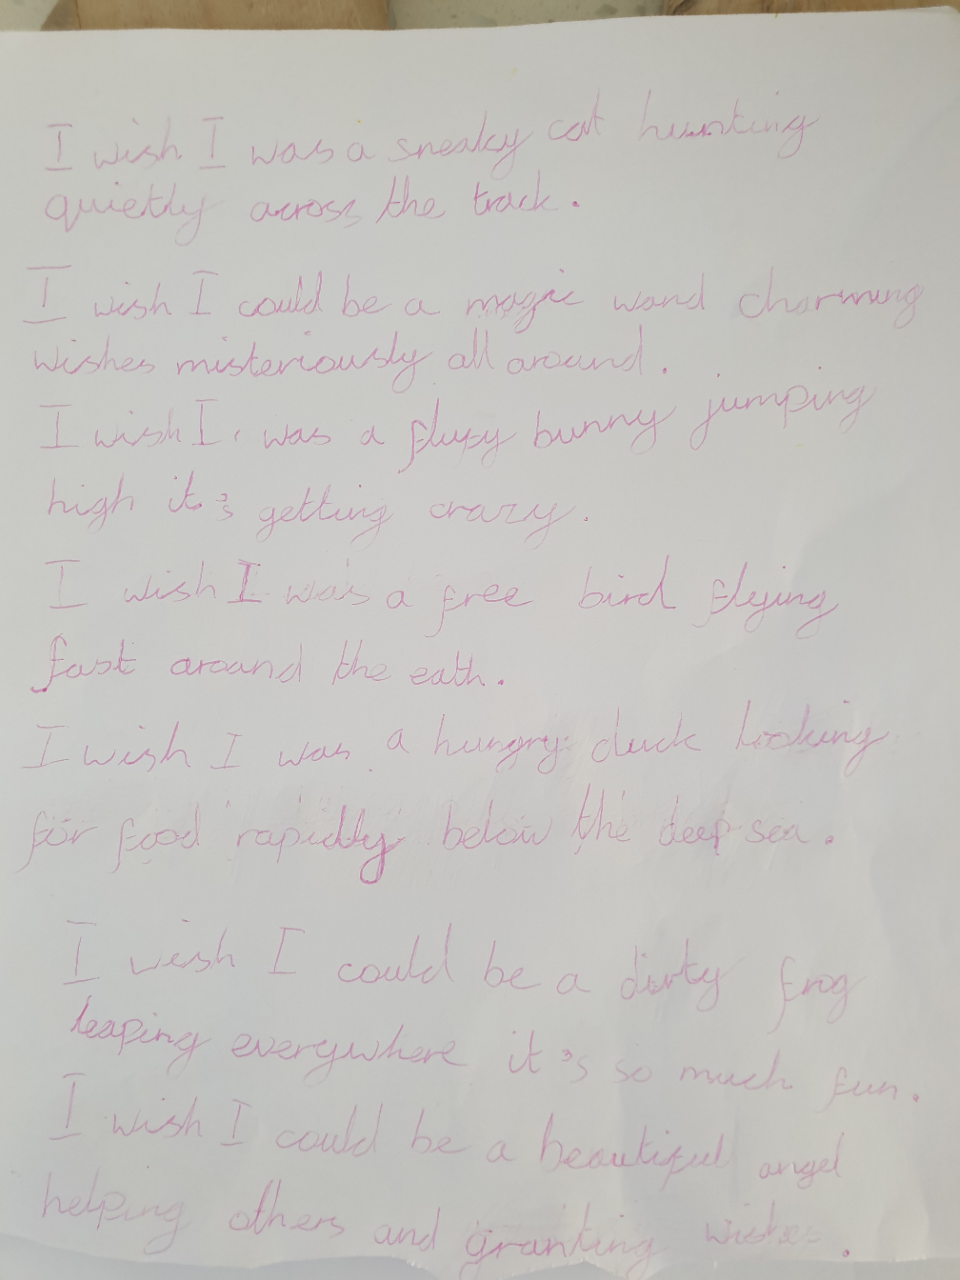 I wish I was a sneaky cat hunting
quietly across the track.
I wish I could be a magic wand charming
wishes misteriously all around.
I wish I was a flufy bunny jumping
high it's getting crazy.
I wish I was a free bird flying
fast around the eath.
I wish I was a hungry duck looking
for food rapidly below the deep sea.
I wish I could be a dirty frog
leaping everywhere it's so much fun.
I wish I could be a beautiful angel
helping others and granting wishes.